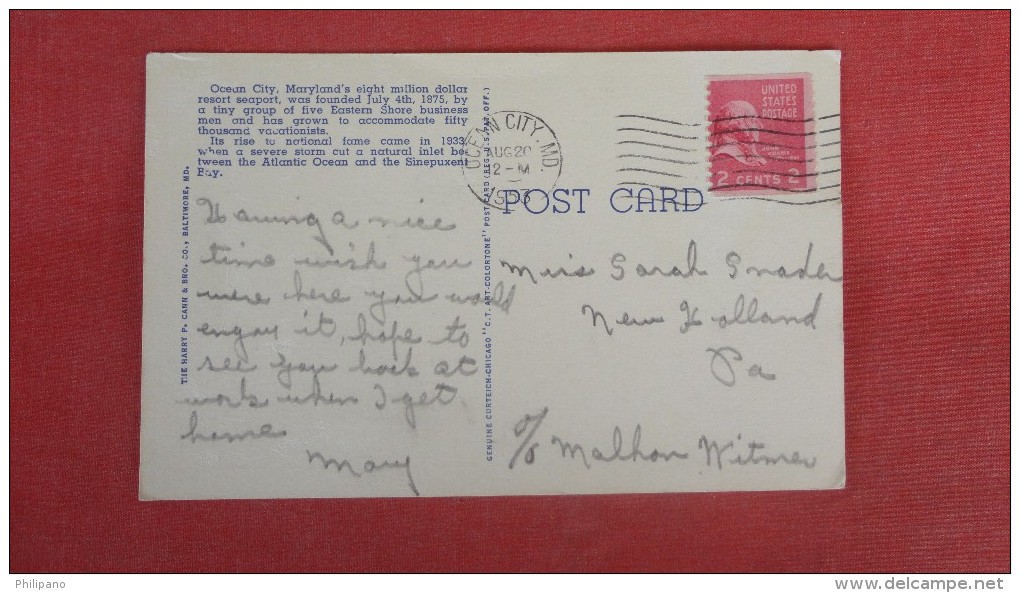 Ocean City, Maryland's eight million dollar
resort seaport, was founded July 4th, 1875, by
a tiny group of five Eastern Shore business
men and has grown to accommodate fifty
thousand vacationists.
Its rise to national fame came in 1933,
when a severe storm cut a natural inlet be-
tween the Atlantic Ocean and the Sinepuxent
Bay.
THE HARRY P. CANN & BRO. CO., BALTIMORE, MD.
Having a nice
time wish you
were here you would
engoy it, hope to
see you back at
work when I get
home
Mary
GENUINE CURTEICH-CHICAGO "C.T. ART-COLORTONE" POST CARD (REG. U.S. PAT. OFF.)
OCEAN CITY, MD.
AUG 20
2 - M
1953
UNITED
STATES
POSTAGE
JOHN
ADAMS
2 CENTS 2
POST CARD
Miss Sarah Snader
New Holland
Pa
c/o Malhon Witmer
Philipano
www.delcampe.net